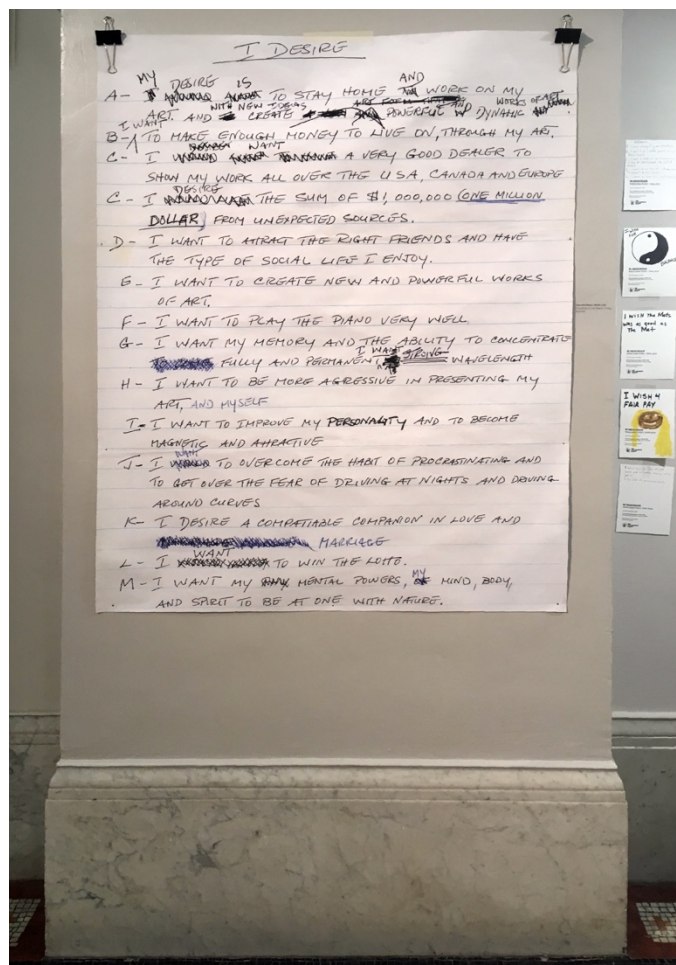 I DESIRE
MY DESIRE IS AND
A- TO STAY HOME WORK ON MY
WITH NEW IDEAS WORKS OF ART
ART. AND CREATE POWERFUL AND DYNAMIC
I WANT
B- TO MAKE ENOUGH MONEY TO LIVE ON, THROUGH MY ART.
WANT
C- I A VERY GOOD DEALER TO
SHOW MY WORK ALL OVER THE USA, CANADA AND EUROPE
DESIRE
C- I THE SUM OF $1,000,000 (ONE MILLION
DOLLAR) FROM UNEXPECTED SOURCES.
D- I WANT TO ATTRACT THE RIGHT FRIENDS AND HAVE
THE TYPE OF SOCIAL LIFE I ENJOY.
E- I WANT TO CREATE NEW AND POWERFUL WORKS
OF ART.
F- I WANT TO PLAY THE PIANO VERY WELL.
G- I WANT MY MEMORY AND THE ABILITY TO CONCENTRATE
I WANT
FULLY AND PERMANENT STRONG WAVELENGTH
H- I WANT TO BE MORE AGRESSIVE IN PRESENTING MY
ART, AND MYSELF
I- I WANT TO IMPROVE MY PERSONALITY AND TO BECOME
MAGNETIC AND ATTRACTIVE
WANT
J- I TO OVERCOME THE HABIT OF PROCRASTINATING AND
TO GET OVER THE FEAR OF DRIVING AT NIGHTS AND DRIVING
AROUND CURVES
K- I DESIRE A COMPATIABLE COMPANION IN LOVE AND
MARRIAGE
WANT
L- I TO WIN THE LOTTO.
M- I WANT MY MENTAL POWERS, MY MIND, BODY,
AND SPIRIT TO BE AT ONE WITH NATURE.
I WISH
I WISH THE Mets
was as good as
The Met
I WISH 4
FAIR PAY